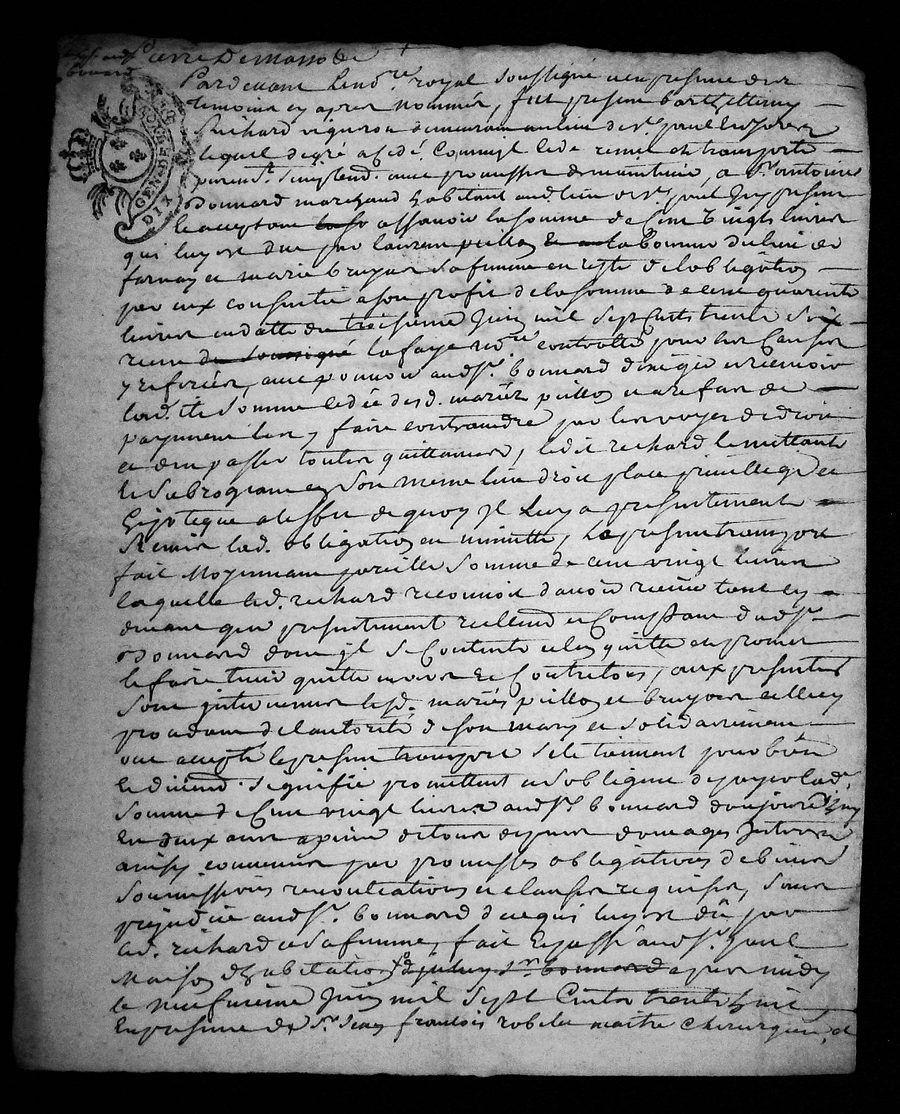 Pardevant le no.re royal soussigné en presence des
temoins cy apres nommés, fut present barthellemy
richard vigneron demeurant au lieu de St. paul
lequel de gré a cedé, remis et transporté
avec promesse de maintenir, a Sr. antoine
bonnard marchand habitant aud. lieu de St. paul en jarest present
le acceptant assavoir la somme de cent vingt livres
qui luy est due par laurent pillon de la comme du lieu de
farnay et marie bruyas sa femme en reste de l'obligation
par eux consentie a son profit de la somme de cent quarante
livres en datte du treisieme juin mil sept cents trente six
receue du soussigné lafaye no.re controllé pour les causes
y referées, avec pouvoir aud. Sr. bonnard d'exiger et recevoir
lad.ite somme cedée desd. mariés pillon et a refus de
payement les y faire contraindre par les voyes de droit
et d'en passer toutes quittances, ledit richard le mettant
et subrogeant en son meme lieu droit place privillege et
hipoteque a l'effet de quoy il luy a presentement
remis lad. obligation en minutte, le present transport
fait moyennant pareille somme de cent vingt livres
laquelle led. richard reconnoit d'avoir receue tant cy
devant que presentement reellement et comptant dud. Sr.
bonnard dont il se contente et l'en quitte et promet
le faire tenir quitte envers et contre tous, aux presentes
sont intervenus lesd. mariés pillon et bruyas icelle cy
procedant de l'autorité de son mary et solidairement
ont accepté le present transport se le tiennent pour bien
et duement signifié promettent et s'obligent de payer lad.
somme de cent vingt livres aud. Sr. bonnard d'aujourd'huy
en deux ans a peine de tous depens domages interets
ainsy convenu par promesses obligations de biens
soumissions renonciations et clauses requises, sans
prejudice aud. Sr. bonnard de ce qui luy est dû par
led. richard et sa femme, fait et passé aud. St. paul
maison d'habitation dud. Sr. bonnard apres midy
le neufvieme juin mil sept cents trente huit
en presence de Sr. jean francois robelin maitre chirurgien, et
GEN. DE LYON
DIX